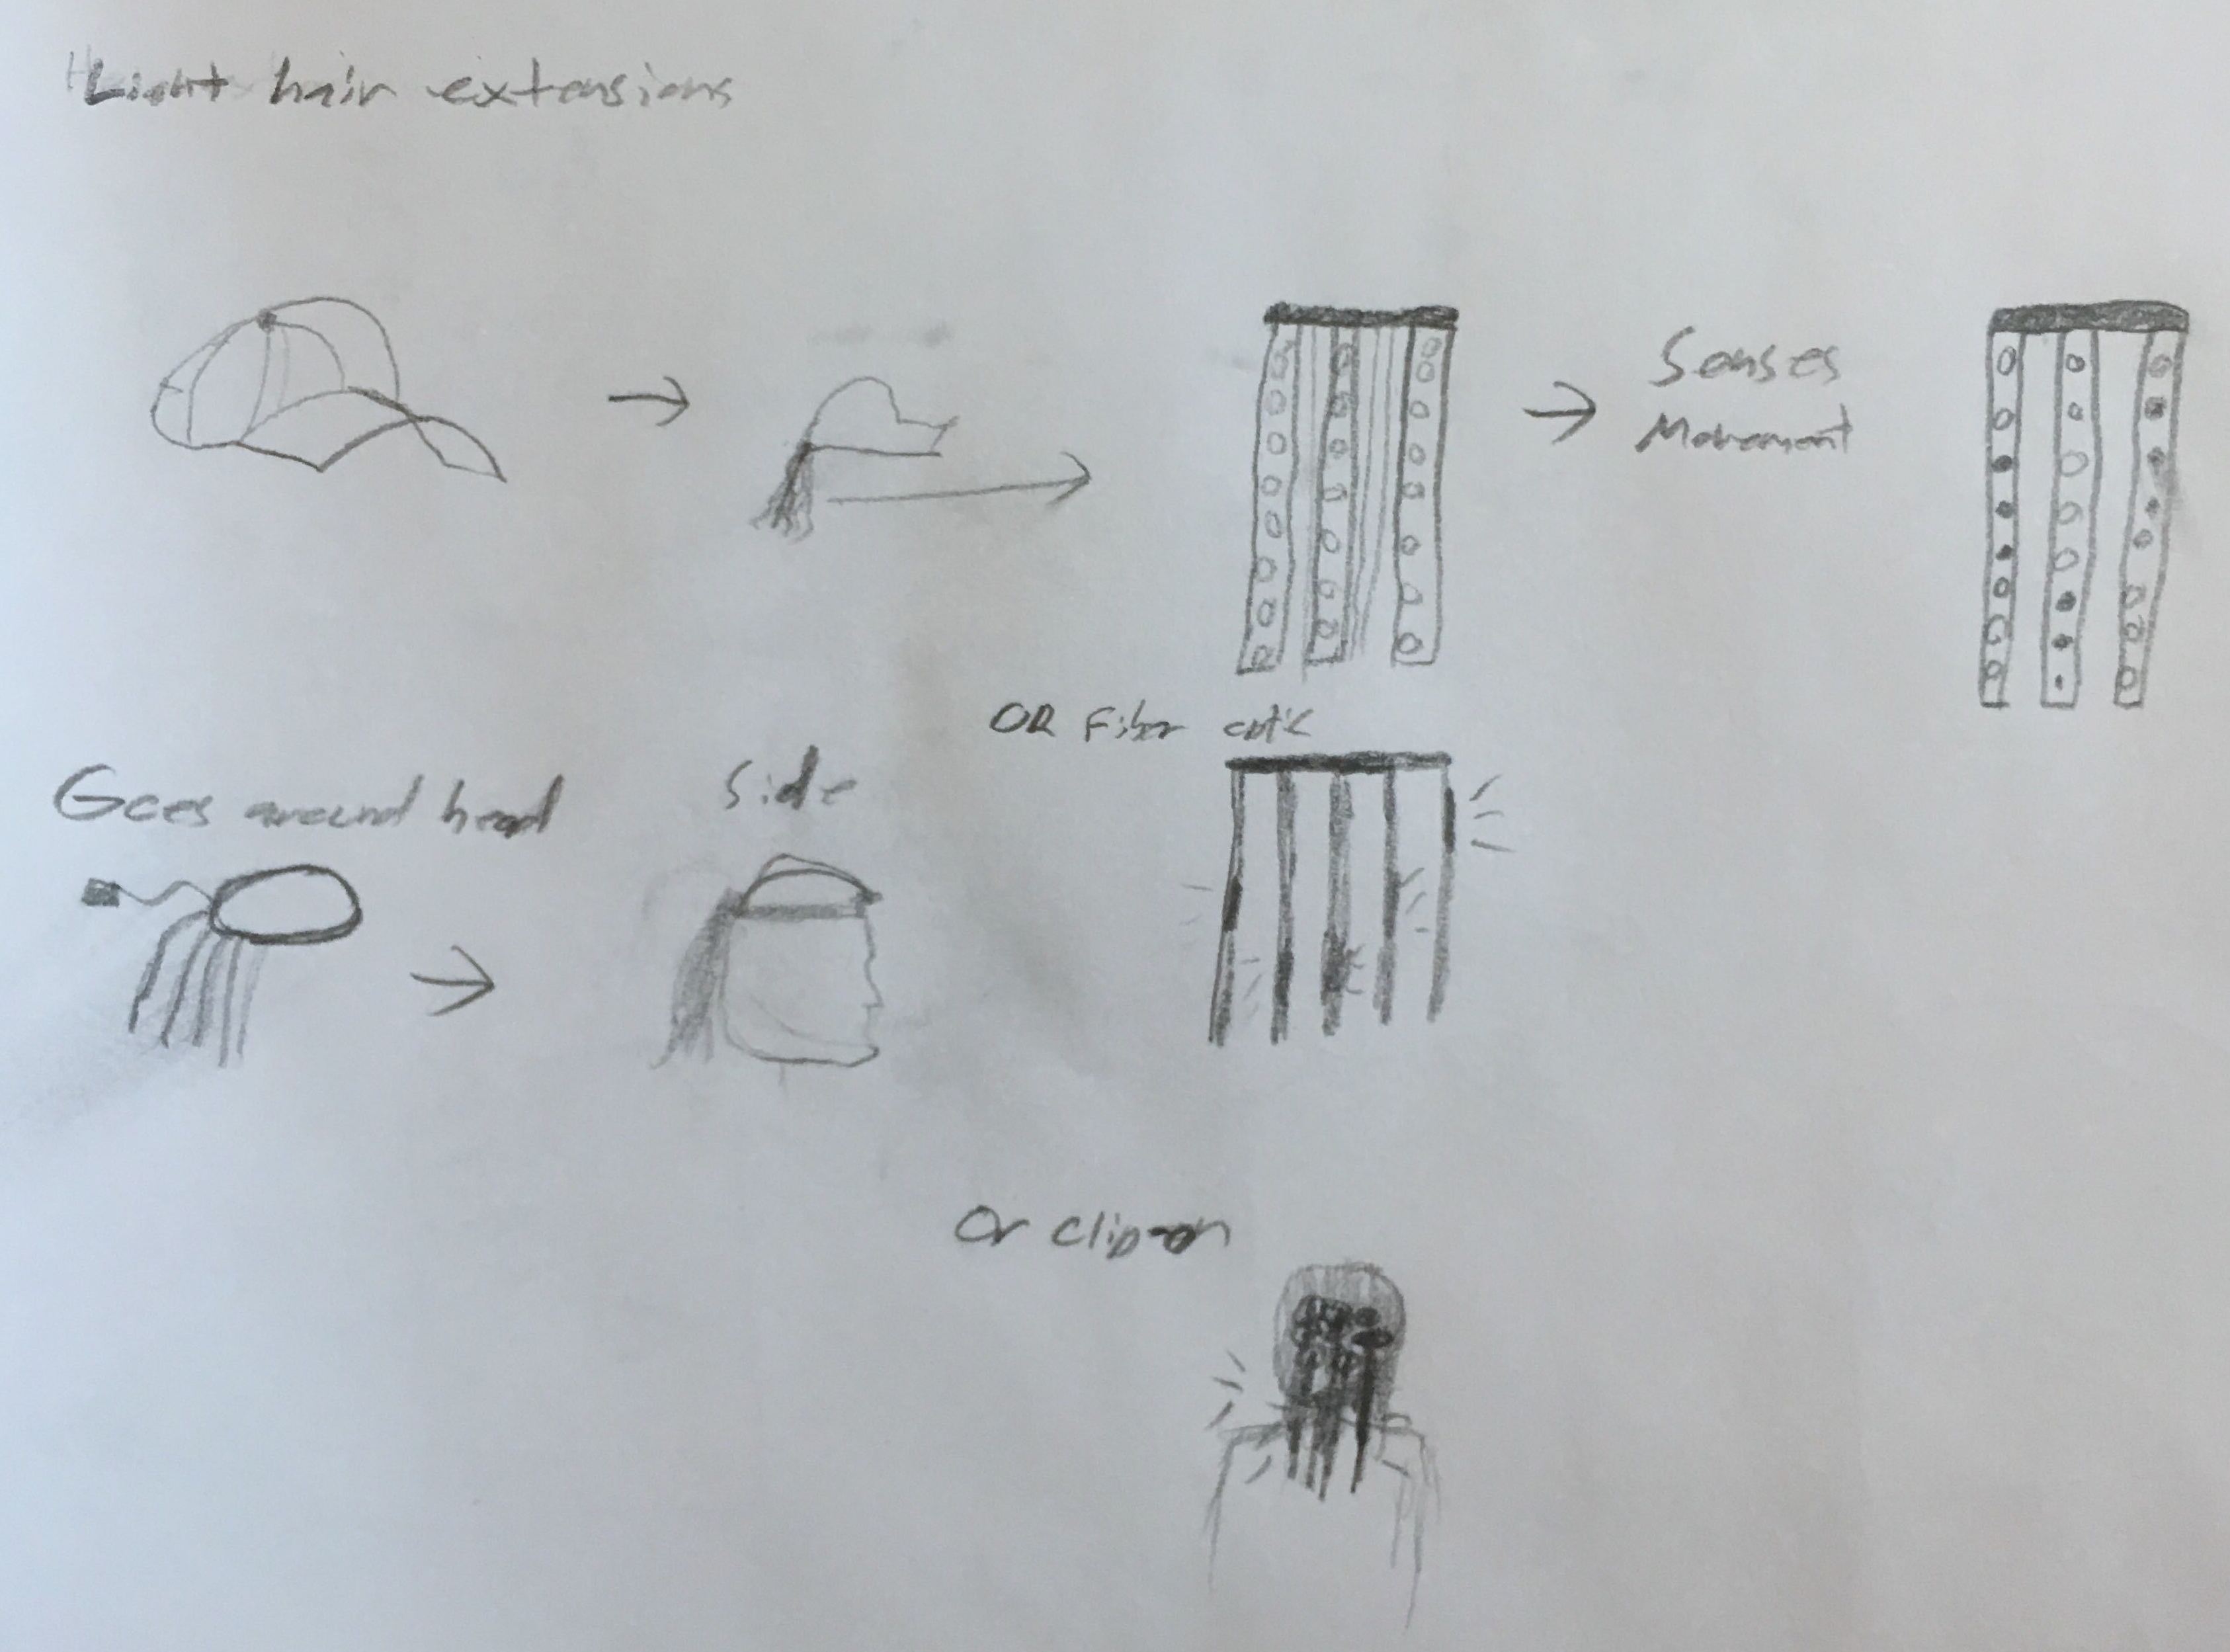 Light hair extensions
Senses
Movement
OR Fiber optic
Goes around head
Side
Or clip-on